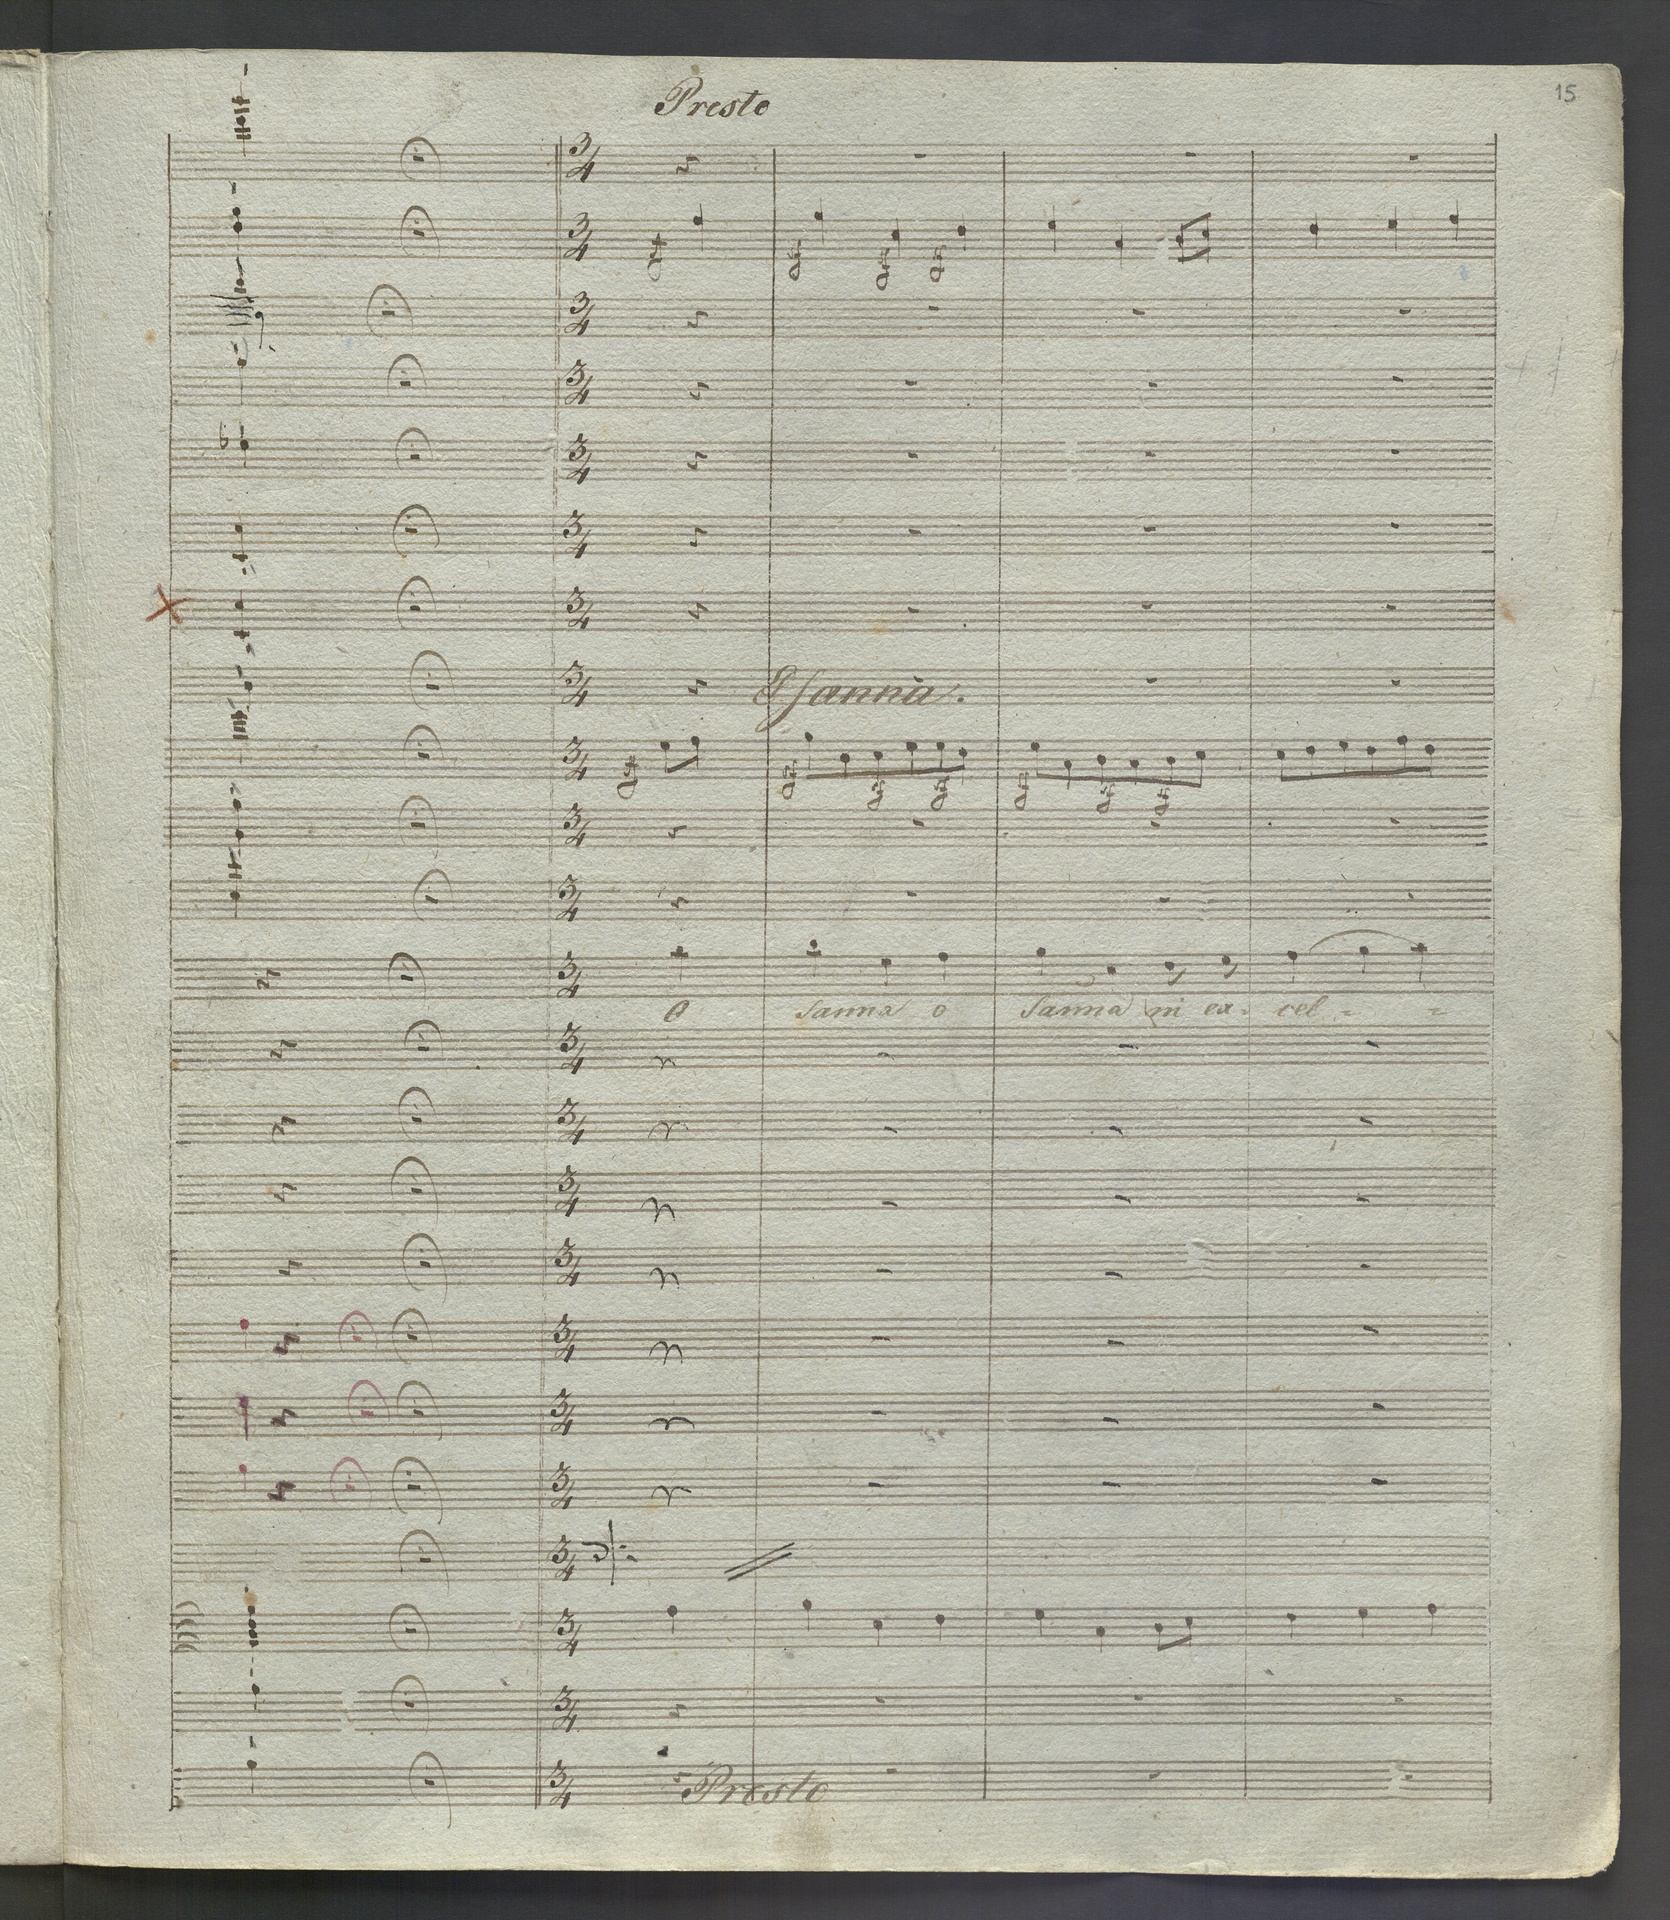 15
Presto
Osanna.
O sanna o sanna in ex- cel - -
Presto